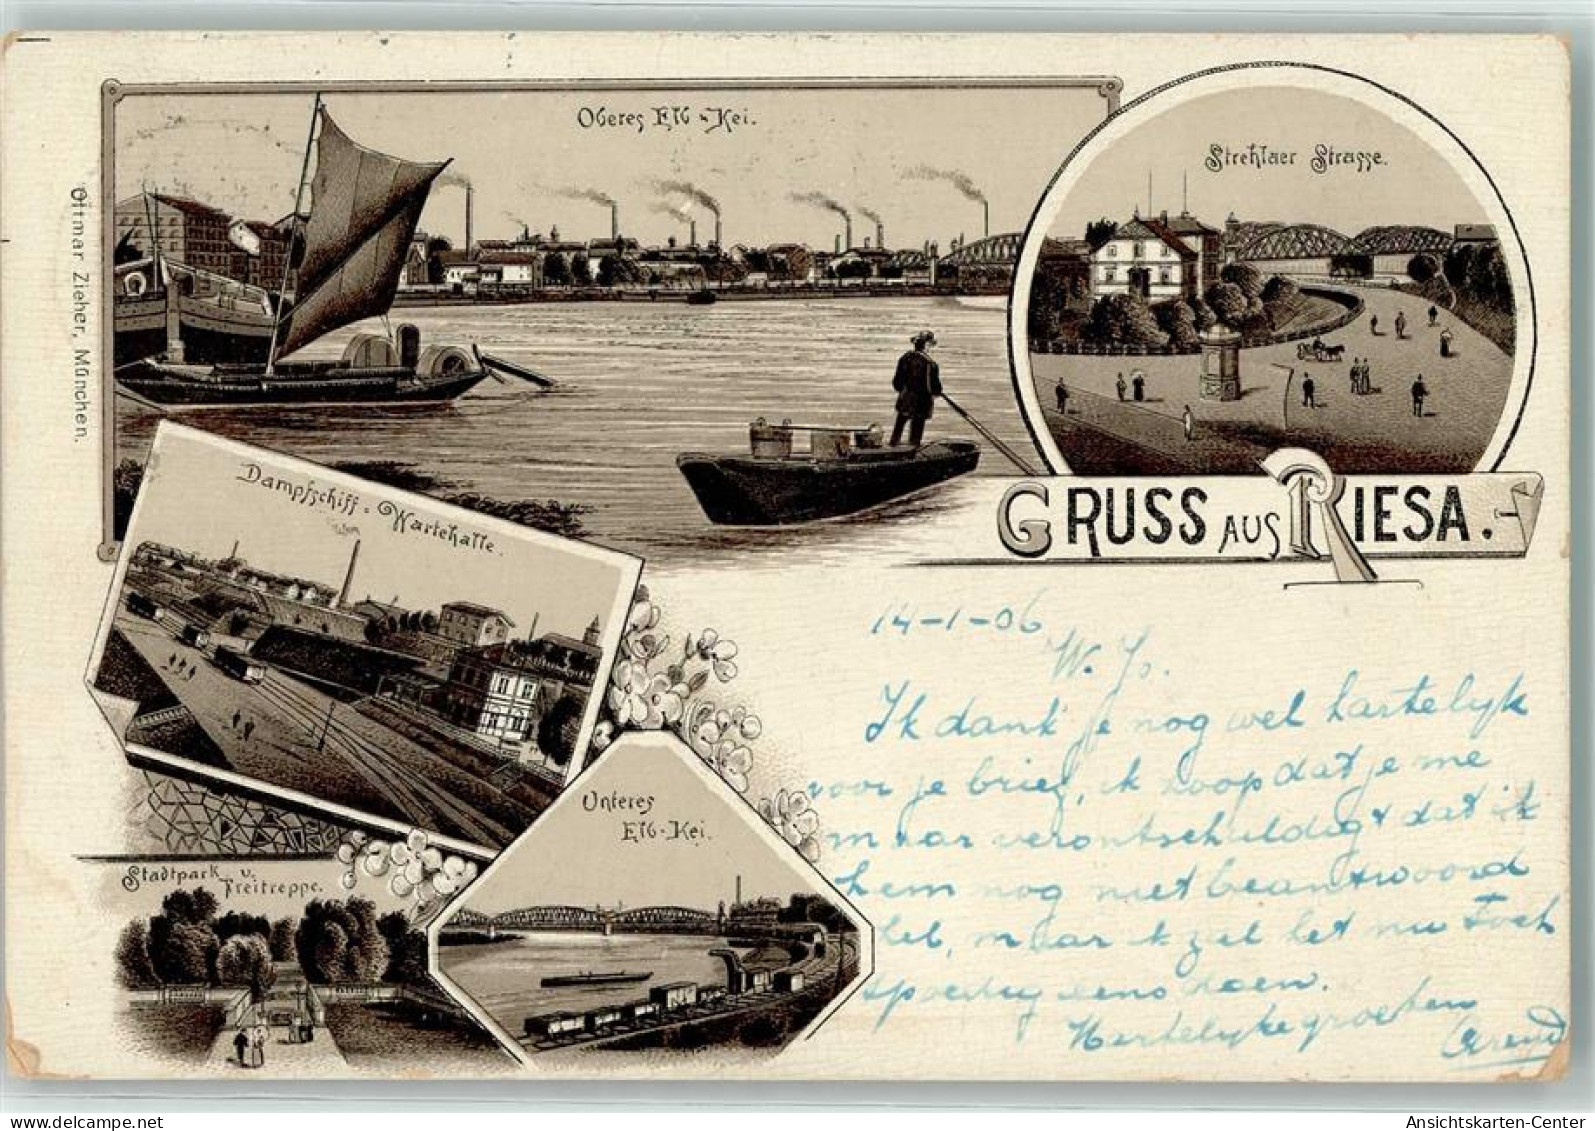 Oberes Elb-Kei.
Strehlaer Strasse.
Ottmar Zieher, München.
Dampfschiff-Wartehalle.
GRUSS AUS RIESA.
Unteres
Elb-Kei.
Stadtpark u.
Freitreppe.
14-1-06
W. Jo.
Ik dank je nog wel hartelijk
voor je brief, ik hoop dat je me
maar verontschuldigt dat ik
hem nog niet beantwoord
heb, maar ik zal het nu toch
spoedig eens doen.
Hartelijke groeten
Arend
Ansichtskarten-Center